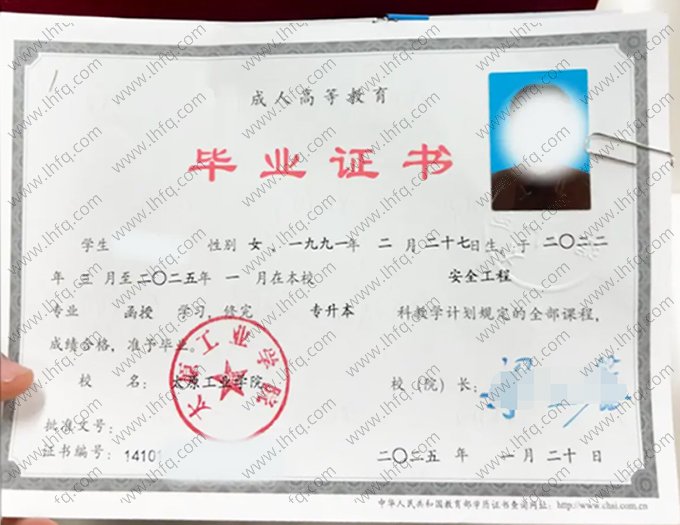 成人高等教育
毕业证书
学生 性别 女，一九九一年 二 月 二十七日生，于 二〇二二
年 三 月至二〇二五年 一 月在本校 安全工程
专业 函授 学习，修完 专升本 科教学计划规定的全部课程，
成绩合格，准予毕业。
校 名：太原工业学院 校（院）长：
太原工业学院
批准文号：
证书编号：14101
二〇二五年 一月二十日
中华人民共和国教育部学历证书查询网址：http://www.chsi.com.cn
www.lhfq.com